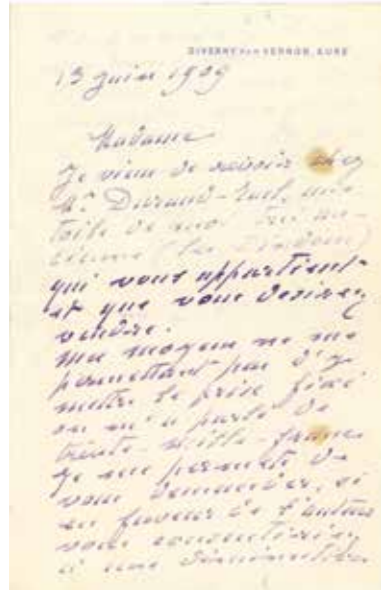 GIVERNY PAR VERNON, EURE
13 juin 1909
Madame
Je viens de savoir chez
Mr. Durand-Ruel, une
toile de moi très an-
cienne (les Dindons)
qui vous appartient
et que vous desirez
vendre.
mes moyens ne me
permettant pas d'y
mettre le prix fixé
on m'a parlé de
trente-mille-francs
je me permets de
vous demander, si
en faveur de l'auteur
vous consentiriez
à une diminution